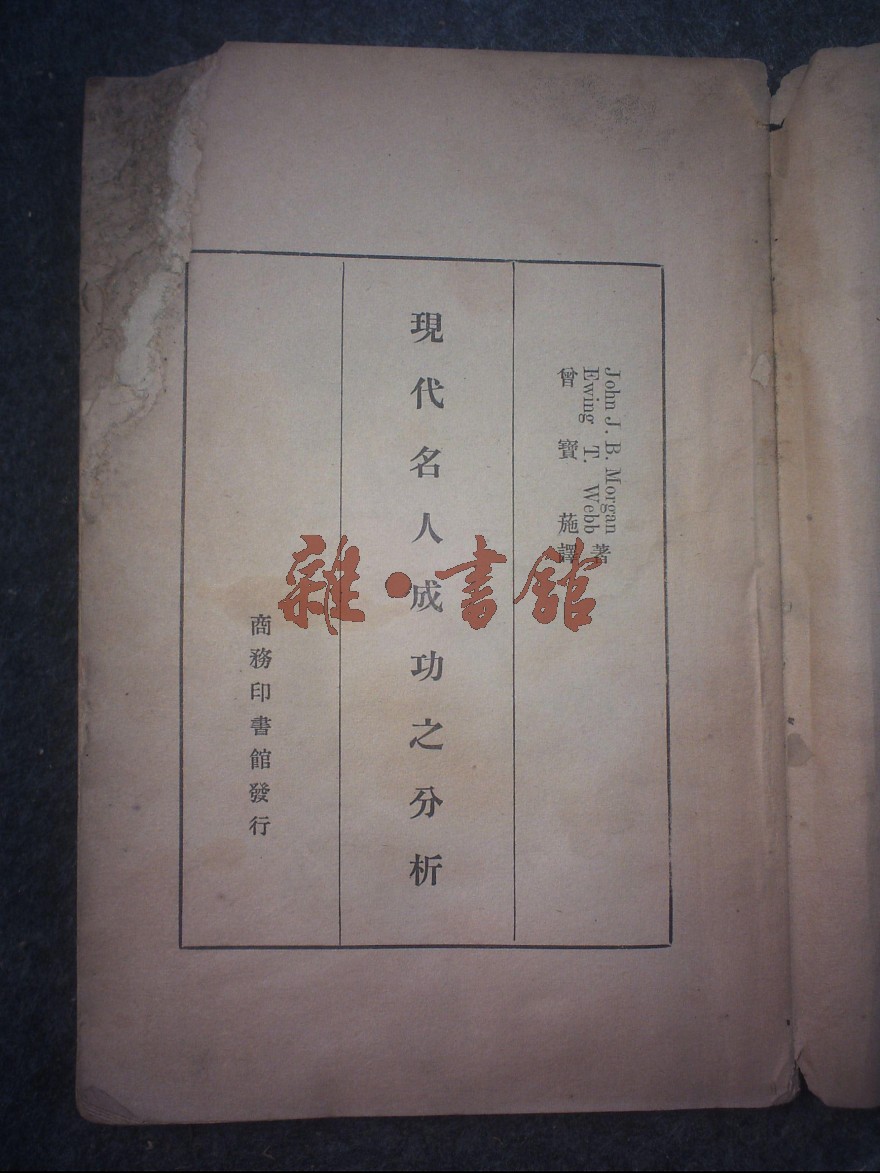 John J. B. Morgan
Ewing T. Webb 著
曾寶葹譯
現代名人成功之分析
商務印書館發行
雜·書館